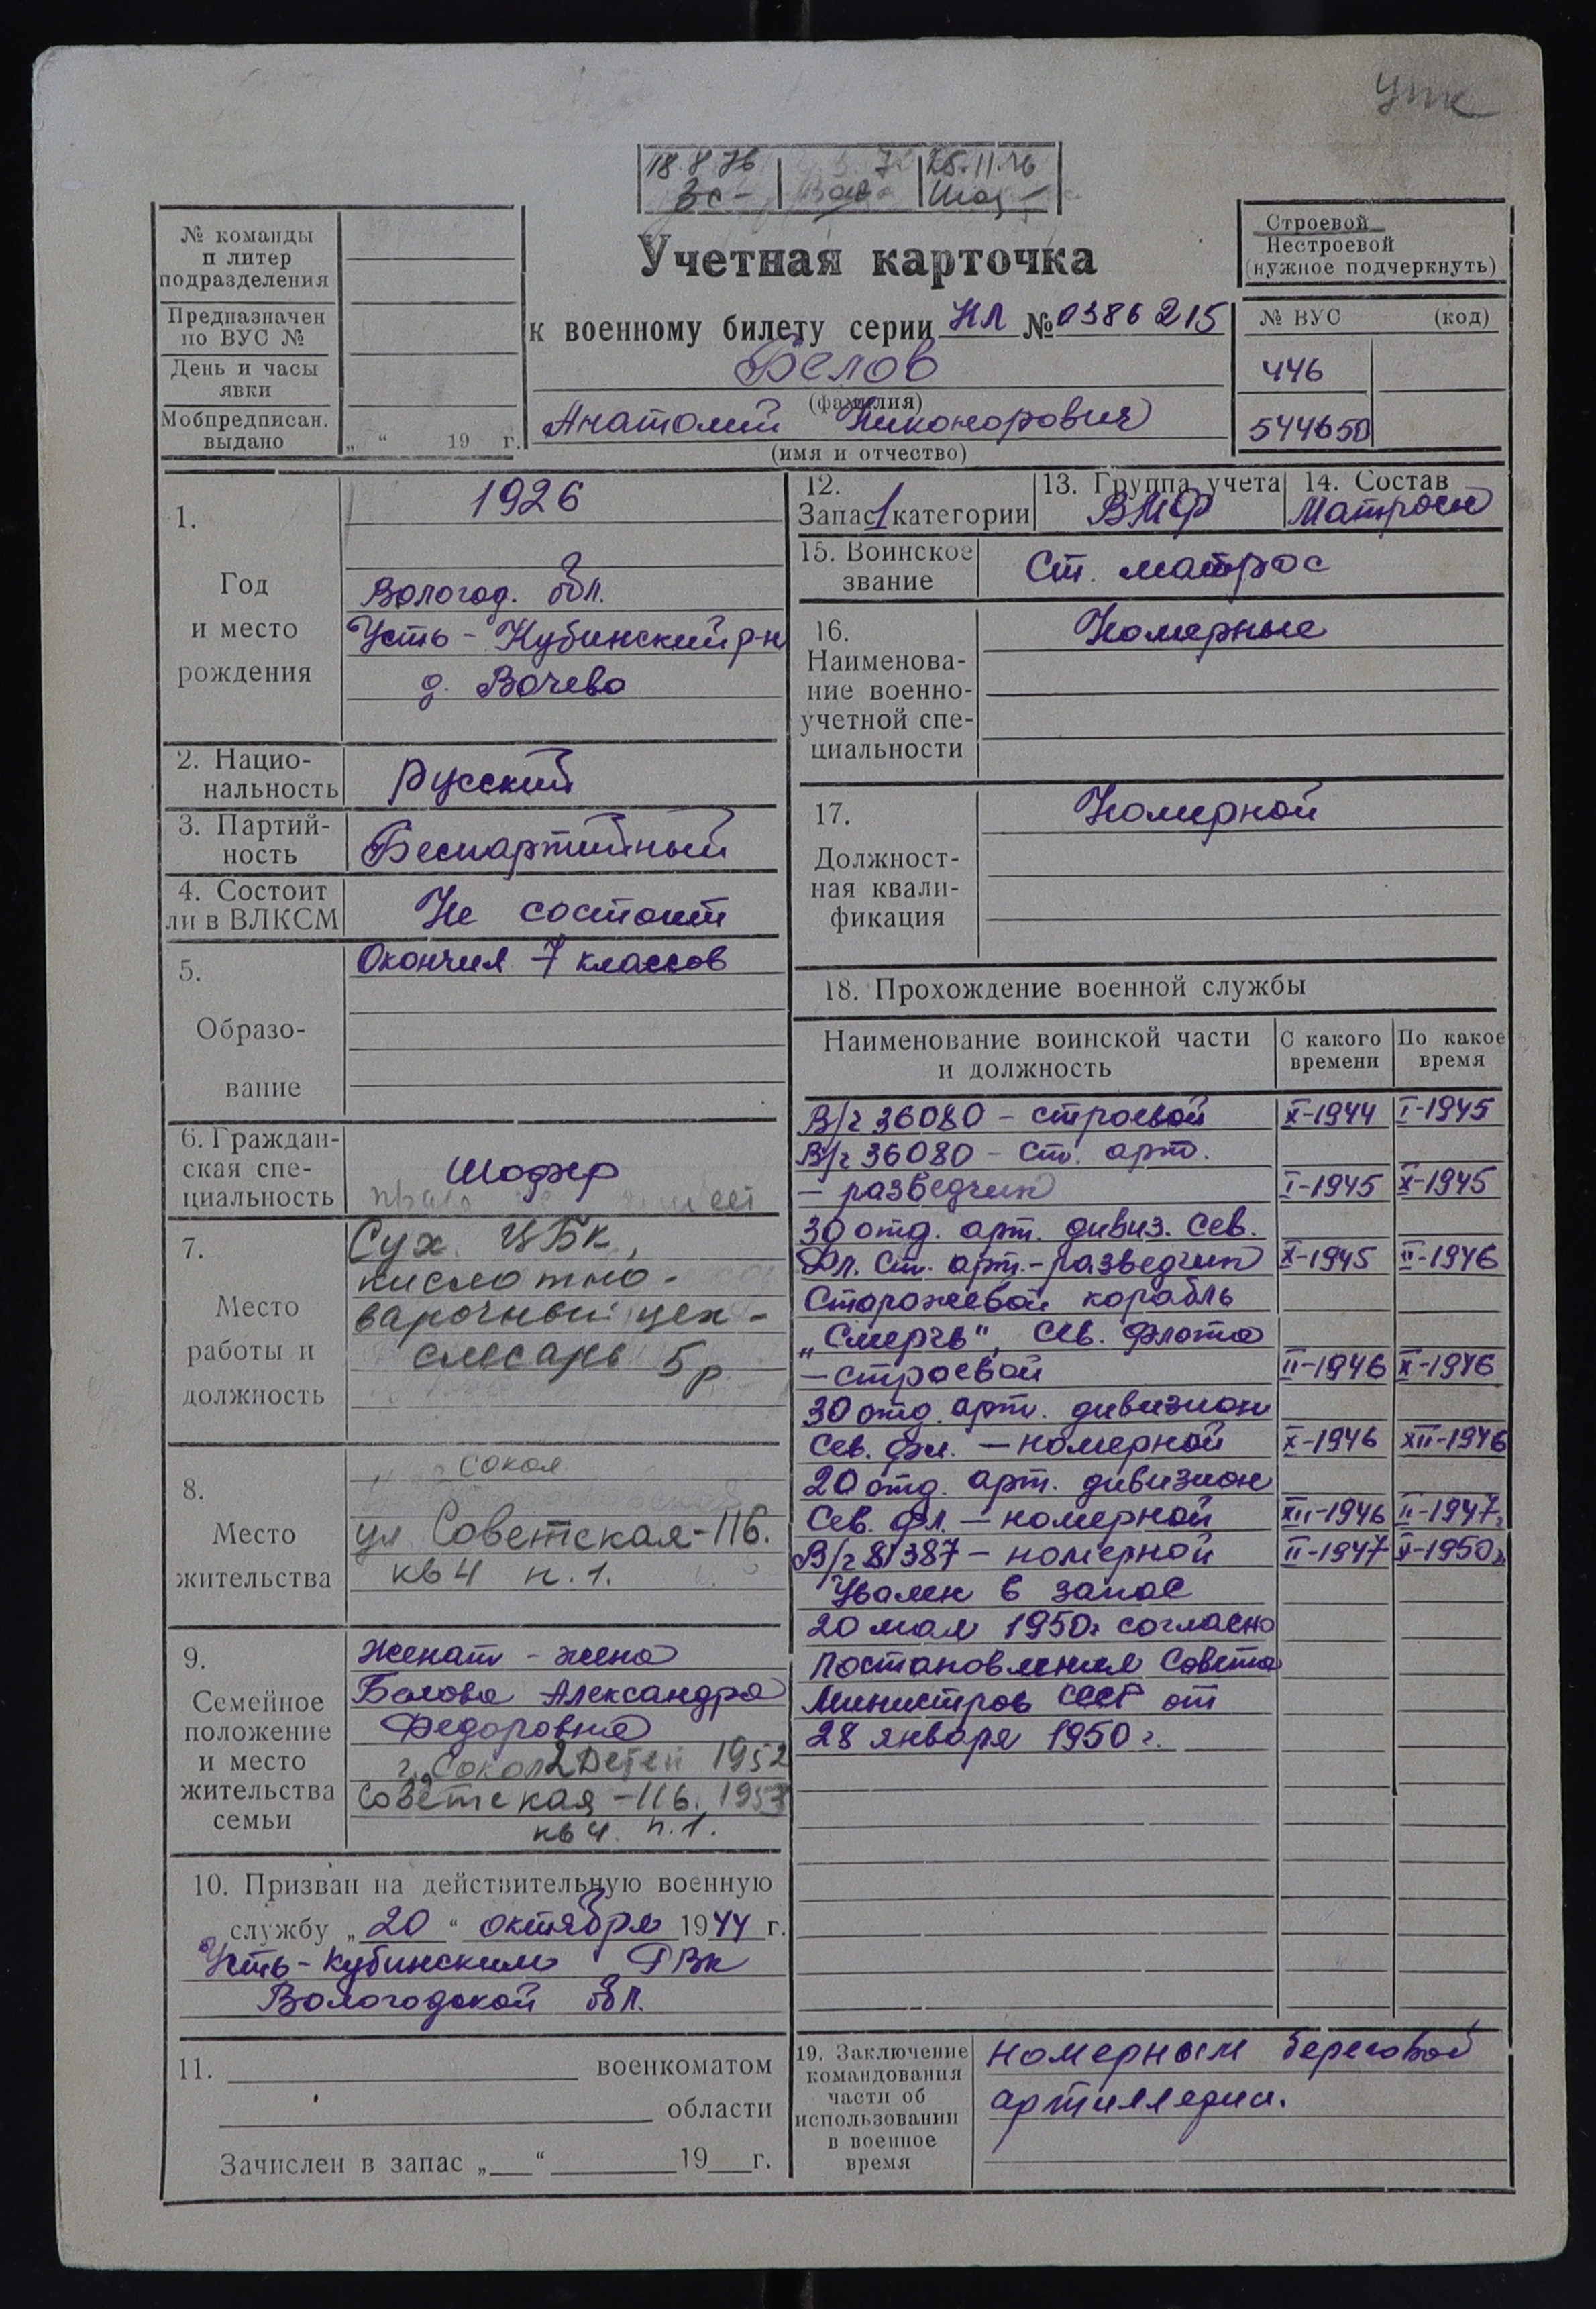 упк
18.8.76
25.11.76
Зс-
№ команды
и литер
подразделения
Предназначен
по ВУС №
День и часы
явки
Мобпредписан.
выдано „ “ 19 г.
Учетная карточка
к военному билету серии НЛ № 0386215
Белов
(фамилия)
Анатолий Никонорович
(имя и отчество)
Строевой
Нестроевой
(нужное подчеркнуть)
№ ВУС (код)
446
544650
1.
Год
и место
рождения
1926
Вологод. обл.
Усть-Кубинский р-н
д. Вочево
2. Нацио-
нальность
Русский
3. Партий-
ность
Беспартийный
4. Состоит
ли в ВЛКСМ
Не состоит
5.
Образо-
вание
Окончил 7 классов
6. Граждан-
ская спе-
циальность
Шофер
7.
Место
работы и
должность
Сух. ЦБК,
кислотно-
варочный цех -
слесарь 5р.
8.
Место
жительства
Сокол
ул Советская-116.
кв 4 п.1.
9.
Семейное
положение
и место
жительства
семьи
Женат - жена
Белова Александра
Федоровна
г. Сокол 2 детей 1952
Советская-116. 1953
кв 4. п.1.
10. Призван на действительную военную
службу „20“ октября 1944 г.
Усть-Кубинским РВК
Вологодской обл.
11. военкоматом
области
Зачислен в запас „ “ 19 г.
12.
Запас 1 категории
13. Группа учета
ВМФ
14. Состав
Матросы
15. Воинское
звание
Ст. матрос
16.
Наименова-
ние военно-
учетной спе-
циальности
Номерные
17.
Должност-
ная квали-
фикация
Номерной
18. Прохождение военной службы
Наименование воинской части
и должность
С какого
времени
По какое
время
В/ч 36080 - строевой X-1944 I-1945
В/ч 36080 - ст. арт.
- разведчик I-1945 X-1945
30 отд. арт. дивиз. Сев.
Фл. Ст. арт.-разведчик X-1945 II-1946
Сторожевой корабль
„Смерч“, Сев. флота
- строевой II-1946 X-1946
30 отд. арт. дивизион
Сев. фл. - номерной X-1946 XII-1946
20 отд. арт. дивизион
Сев. фл. - номерной XII-1946 II-1947г
В/ч 81387 - номерной II-1947 V-1950г
Уволен в запас
20 мая 1950г согласно
Постановления Совета
Министров СССР от
28 января 1950 г.
19. Заключение
командования
части об
использовании
в военное
время
номерным береговой
артиллерии.